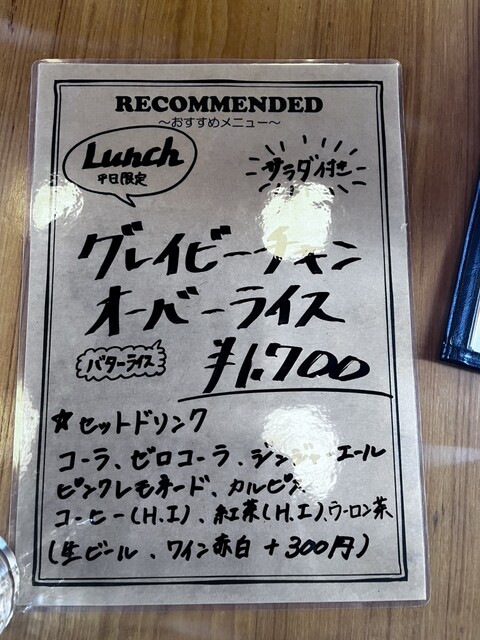 RECOMMENDED
〜おすすめメニュー〜
Lunch
平日限定
サラダ付き
グレイビーチキン
オーバーライス
バターライス
¥1,700
☆セットドリンク
コーラ、ゼロコーラ、ジンジャーエール
ピンクレモネード、カルピス
コーヒー(H.I)、紅茶(H.I)、ウーロン茶
(生ビール、ワイン赤白 +300円)